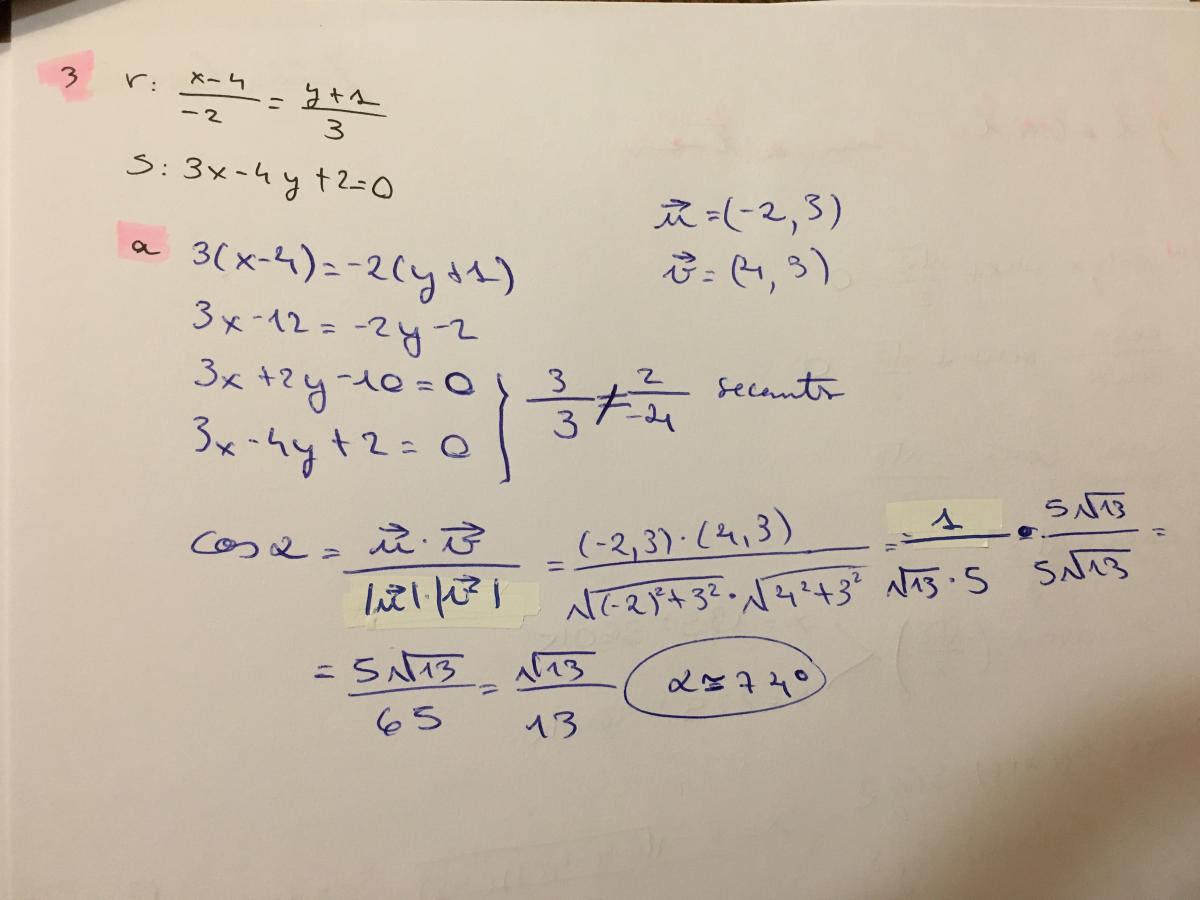 3 r: (x-4)/(-2) = (y+1)/3
S: 3x-4y+2=0
a 3(x-4)=-2(y+1)
3x-12=-2y-2
3x+2y-10=0
3x-4y+2=0 } 3/3 ≠ 2/(-4) secants
u⃗=(-2,3)
v⃗=(4,3)
cos α = (u⃗·v⃗)/(|u⃗|·|v⃗|) = ((-2,3)·(4,3))/(√((-2)²+3²)·√(4²+3²)) = 1/(√13·5) · (5√13)/(5√13) =
= (5√13)/65 = √13/13 α≃74°